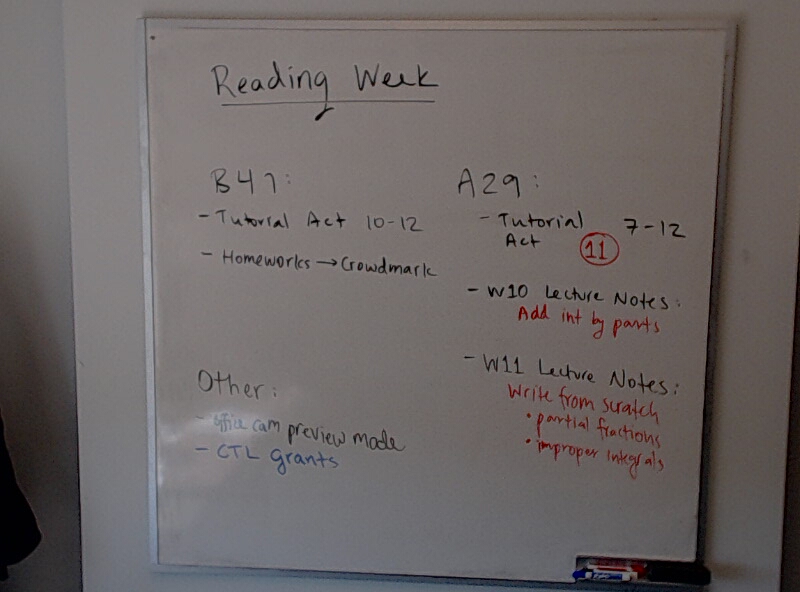 Reading Week
B41:
- Tutorial Act 10-12
- Homeworks → Crowdmark
Other:
- office cam preview mode
- CTL grants
A29:
- Tutorial 7-12
Act 11
- W10 Lecture Notes:
Add int by parts
- W11 Lecture Notes:
Write from scratch
• partial fractions
• improper integrals